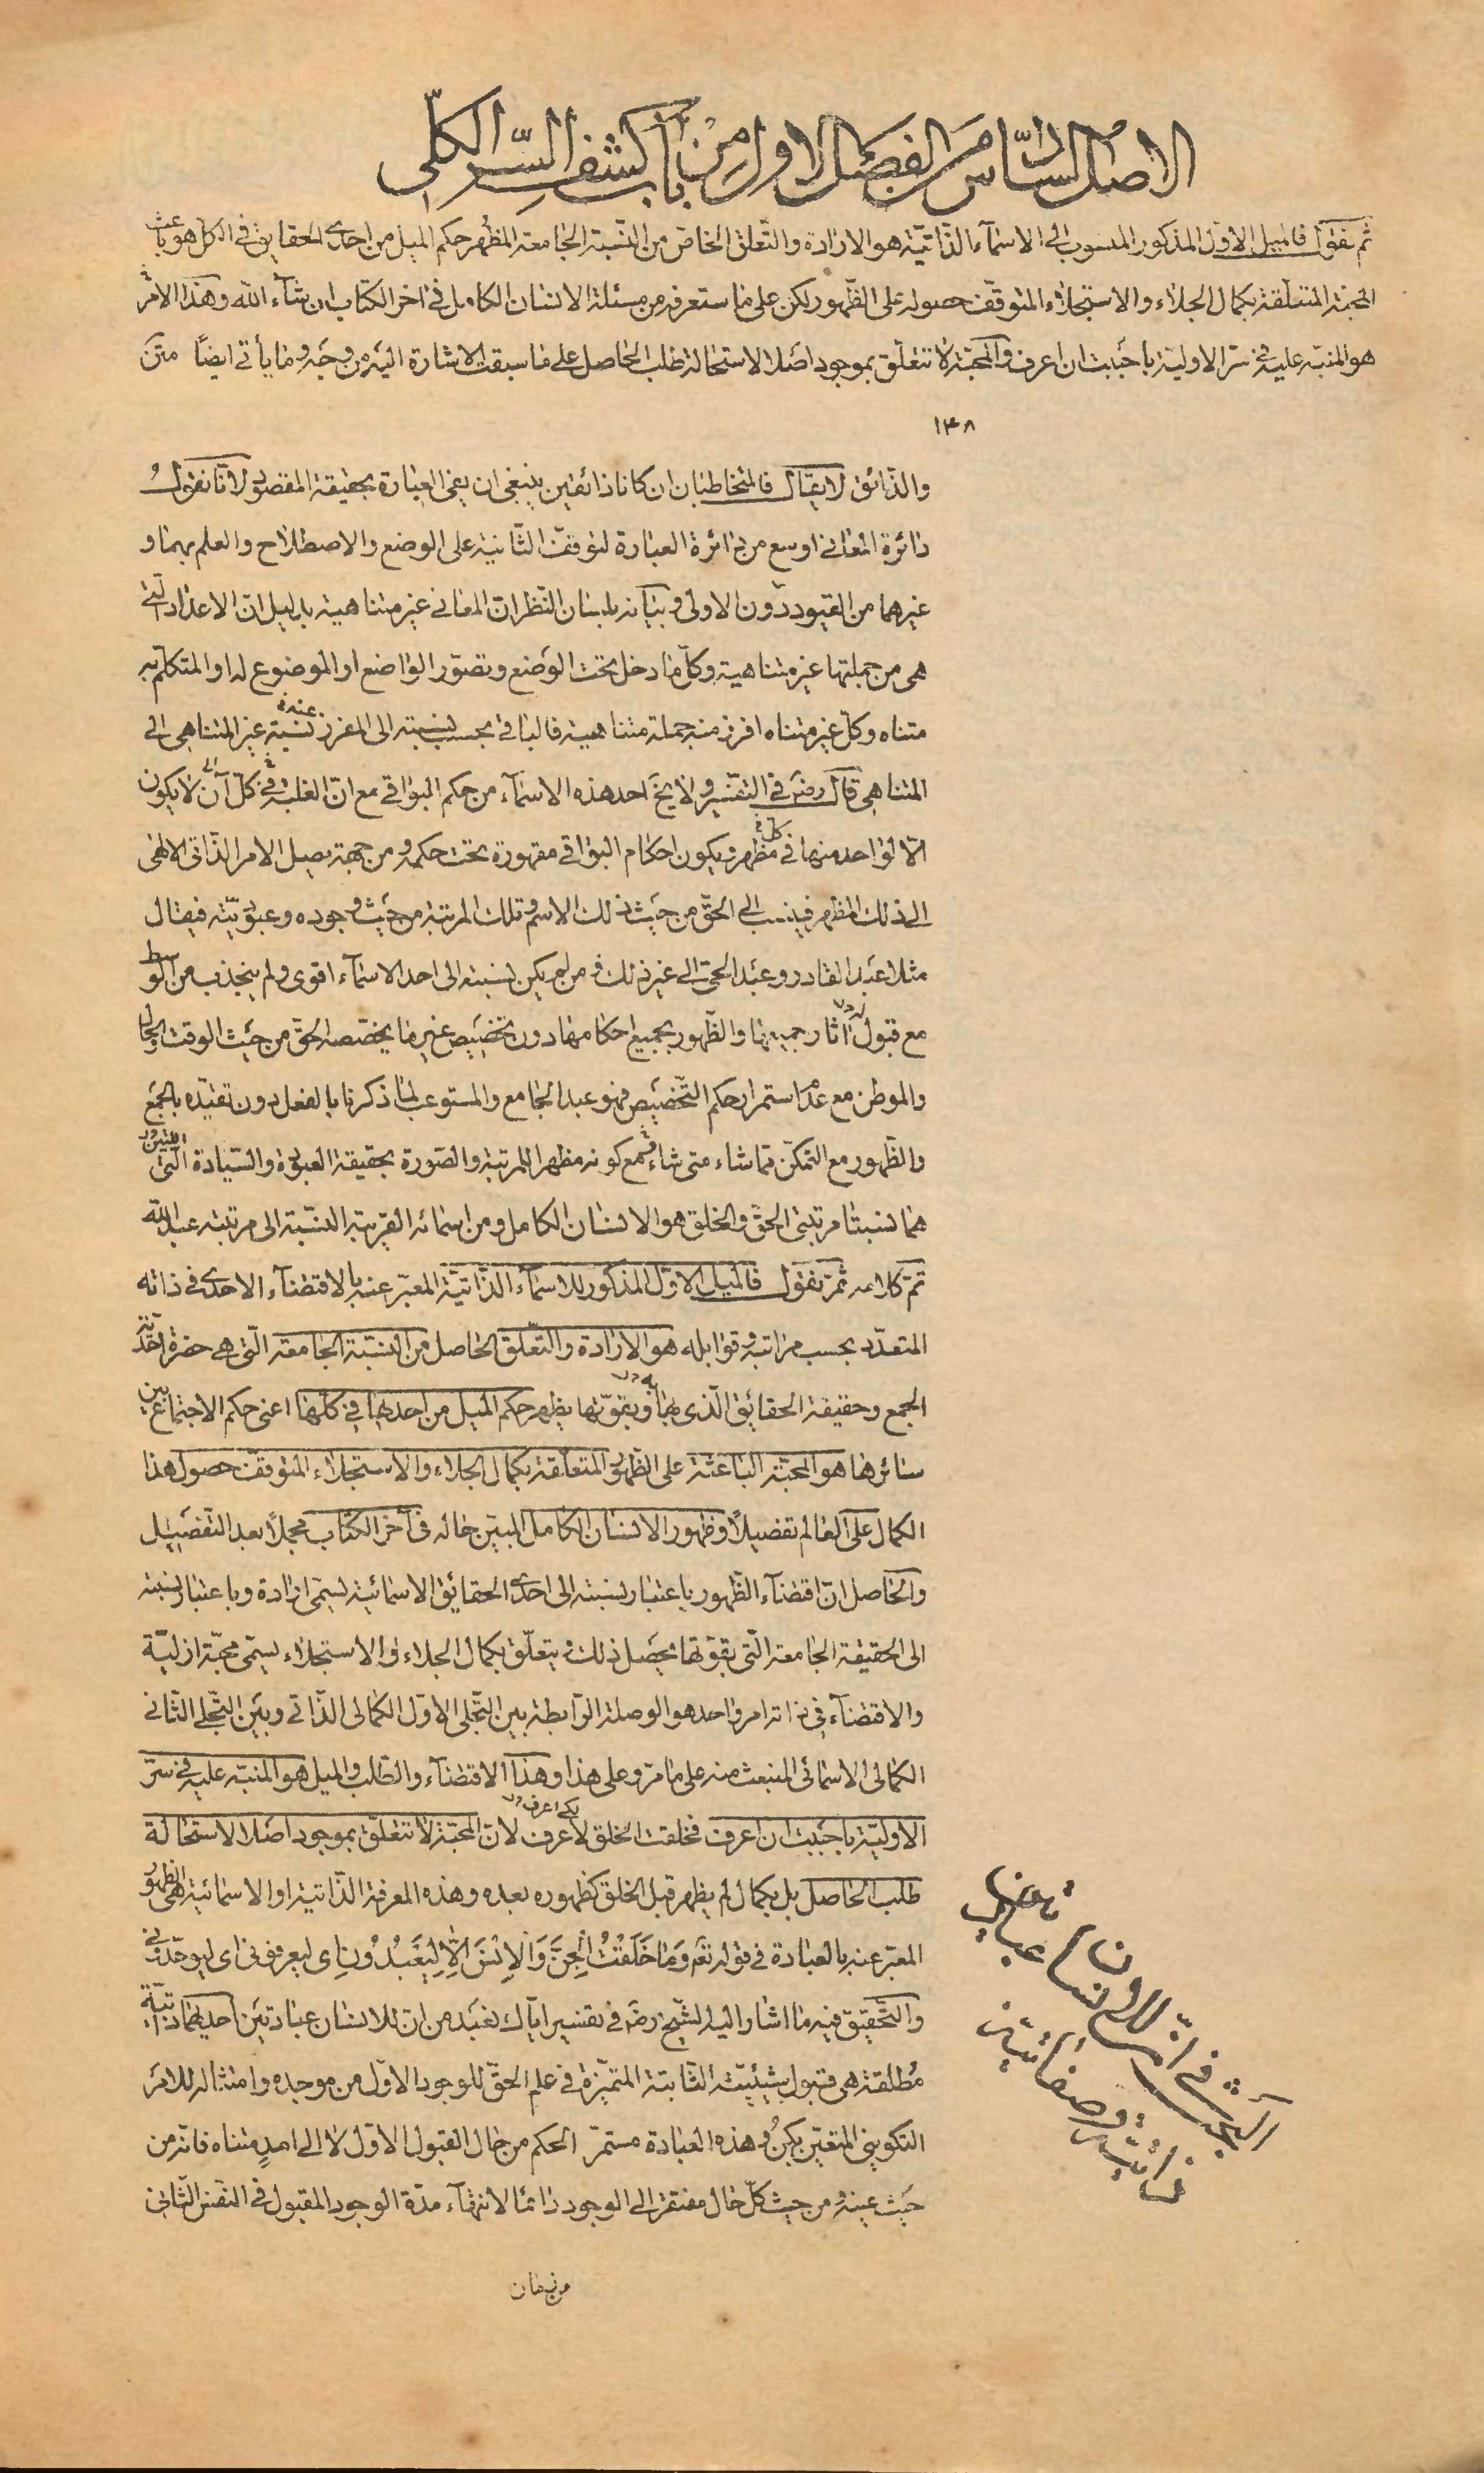 الاصل السادس من الفصل الاول من باب كشف السر الكلي
ثم نقول فالميل الاول المذكور المنسوب الى الاسماء الذاتية هو الارادة والتعلق الخاص من النسبة الجامعة المظهر حكم الميل من احدى الحقايق في الكل هو باعث
المحبة المتعلقة بكمال الجلاء والاستجلاء المتوقف حصوله على الظهور لكن على ما ستعرفه من مسئلة الانسان الكامل في اخر الكتاب ان شاء الله وهذا الامر
هو المنبه عليه في سر الاولية باحببت ان اعرف والمحبة لا تتعلق بموجود اصلا لاستحالة طلب الحاصل على ما سبقت الاشارة اليه من وجه وما يأتي ايضًا متن
١٤٨
والذائق لا يقال فالمتخاطبان ان كانا ذائقين ينبغي ان يفي العبارة بحقيقة المقصود لانا نقول
دائرة المعاني اوسع من دائرة العبارة لتوقف الثانية على الوضع والاصطلاح والعلم بهما و
غيرهما من القيود دون الاولى وبيانه بلسان النظر ان المعاني غير متناهية بدليل ان الاعداد التي
هي من جملتها غير متناهية وكل ما دخل تحت الوضع وتصور الواضع او الموضوع له او المتكلم به
متناه وكل غير متناه افرز منه جملة متناهية فالباقي بحسب نسبته الى المفرز عنه نسبة غير المتناهي الى
المتناهي قال رضي في التفسير ولا يخ احد هذه الاسماء من حكم البواقي مع ان الغلبة في كل آن لا يكون
الا لواحد منها في كل مظهر ويكون احكام البواقي مقهورة تحت حكمه ومن جهته يصل الامر الذاتي الالهي
الى ذلك المظهر فينسب الى الحق من حيث ذلك الاسم وتلك المرتبة من حيث وجوده وعبوديته فيقال
مثلا عبد القادر وعبد الحي الى غير ذلك ومن لم يكن نسبته الى احد الاسماء اقوى ولم ينجذب من الوسط
مع قبوله اثار جميعها والظهور بجميع احكامها دون تخصيص غير ما يخصصه الحق من حيث الوقت والحال
والموطن مع عدم استمرار حكم التخصيص فهو عبد الجامع والمستوعب لما ذكرنا بالفعل دون تقيده بالجمع
والظهور مع التمكن مما شاء متى شاء مع كونه مظهرا للمرتبة والصورة بحقيقة العبودة والسيادة اللتين
هما نسبتا مرتبتي الحق والخلق هو الانسان الكامل ومن اسمائه القريبة النسبة الى مرتبته عبد الله
تم كلامه ثم نقول فالميل الاول المذكور للاسماء الذاتية المعبر عنه بالاقتضاء الاحدى في ذاته
المتعدد بحسب مراتبه وقوابله هو الارادة والتعلق الحاصل من النسبة الجامعة التي هي حضرة احدية
الجمع وحقيقة الحقائق الذي بها وبقوتها يظهر حكم الميل من احديها في كلها اعني حكم الاجتماع بين
سائرها هو المحبة الباعثة على الظهور المتعلقة بكمال الجلاء والاستجلاء المتوقف حصول هذا
الكمال على العالم تفصيلًا وظهور الانسان الكامل المبين حاله في آخر الكتاب مجملًا بعد التفصيل
والحاصل ان اقتضاء الظهور باعتبار نسبته الى احدى الحقائق الاسمائية يسمى ارادة وباعتبار نسبته
الى الحقيقة الجامعة التي بقوتها يحصل ذلك ويتعلق بكمال الجلاء والاستجلاء يسمى محبة ازلية
والاقتضاء في ذاته امر واحد هو الوصلة الرابطة بين التجلي الاول الكمالي الذاتي وبين التجلي الثاني
الكمالي الاسمائي المنبعث منه على ما مر وعلى هذا وهذا الاقتضاء والطلب والميل هو المنبه عليه في سر
الاولية باحببت ان اعرف فخلقت الخلق لاعرف لكي اعرف لان المحبة لا تتعلق بموجود اصلا لاستحالة
طلب الحاصل بل بكمال لم يظهر قبل الخلق كظهوره بعده وهذه المعرفة الذاتية او الاسمائية هي الظهور
المعبر عنه بالعبادة في قوله تعم وَمَا خَلَقْتُ الْجِنَّ وَالْاِنْسَ اِلَّا لِيَعْبُدُونِ اي ليعرفوني اي ليوحدوني
والتحقيق فيه ما اشار اليه الشيخ رضه في تفسير اياك نعبد من ان للانسان عبادتين احديهما ذاتية
مُطلقة هي قبول شيئيته الثابتة المتميزة في علم الحق للوجود الاول من موجده وامتثاله للامر
التكويني المتعين بكن وهذه العبادة مستمرة الحكم من حال القبول الاول لا الى امدٍ متناه فانه من
حيث عينه ومن حيث كل حال مفتقر الى الوجود دائما لانتهاء مدة الوجود المقبول في النفس الثاني
من زمان
البحث في ان للانسان عبادتين
ذاتية وصفاتية